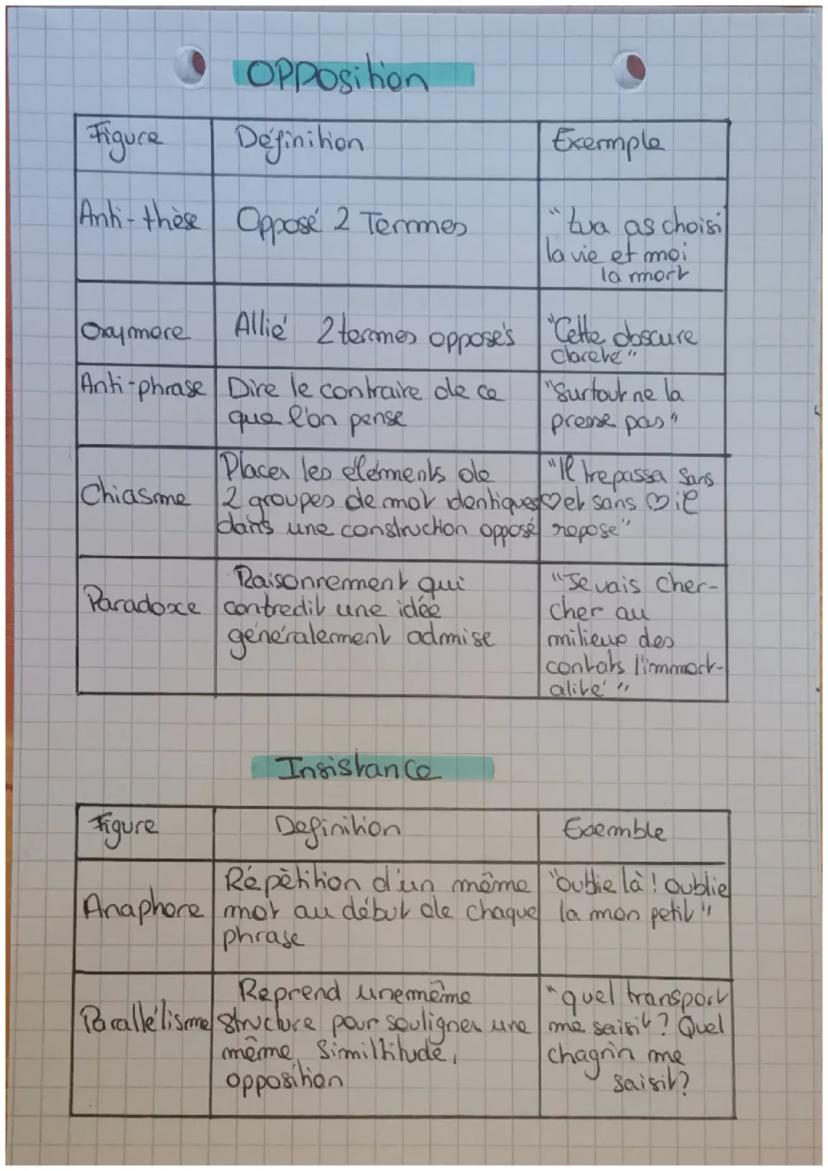 Opposition
Figure Définition Exemple
Anti-thèse Opposé 2 Termes "tua as choisi
la vie et moi
la mort
Oxymore Allié 2 termes opposés "Cette obscure
clareté"
Anti-phrase Dire le contraire de ce
que l'on pense
"Surtout ne la
presse pas"
Chiasme
Placer les éléments de
2 groupes de mot identiques
dans une construction opposé
"Il trepassa sans
♡ et sans ♡ il
repose"
Paradoxe
Raisonnement qui
contredit une idée
généralement admise
"Je vais cher-
cher au
milieu des
contats l'immort-
alité"
Insistance
Figure Definition Exemble
Anaphore
Répètition d'un même
mot au début de chaque
phrase
"Oublie là ! Oublie
la mon petit"
Parallélisme
Reprend une même
structure pour souligner une
même, similtitude,
opposition
"quel transport
me saisit ? Quel
chagrin me
saisit?